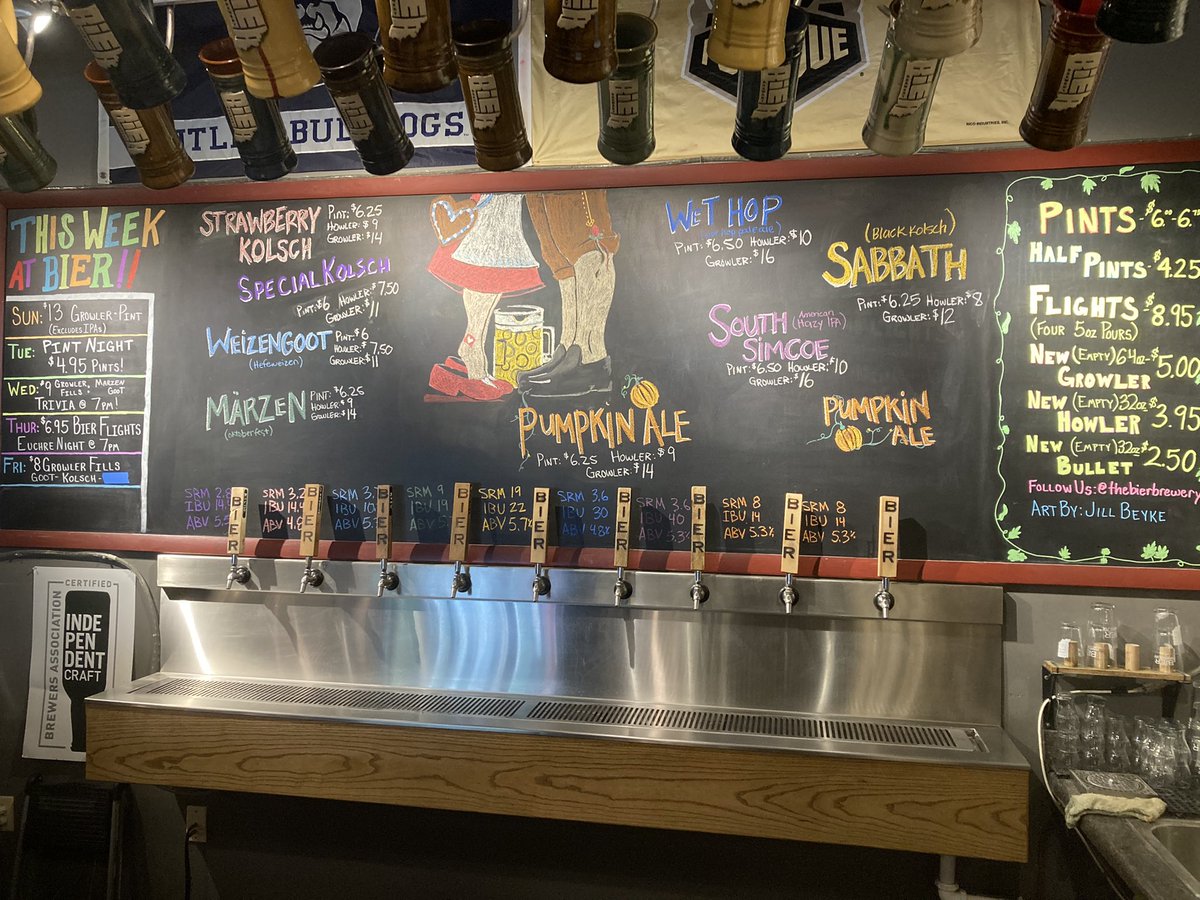 BULLDOGS
THIS WEEK
AT BIER!!
SUN: $13 GROWLER-PINT
(EXCLUDES IPAs)
TUE: PINT NIGHT
$4.95 PINTS!
WED: $9 GROWLER, MARZEN
FILLS • GOOT
TRIVIA @ 7PM!
THUR: $6.95 BIER FLIGHTS
EUCHRE NIGHT @ 7PM
FRI: $8 GROWLER FILLS
GOOT - KOLSCH -
STRAWBERRY
KOLSCH
PINT: $6.25
HOWLER: $9
GROWLER: $14
SPECIAL KOLSCH
PINT: $6 HOWLER: $7.50
GROWLER: $11
WEIZENGOOT
(Hefeweizen)
PINT: $6
HOWLER: $7.50
GROWLER: $11
MÄRZEN
(oktoberfest)
PINT: $6.25
HOWLER: $9
GROWLER: $14
PUMPKIN ALE
PINT: $6.25 HOWLER: $9
GROWLER: $14
WET HOP
PINT: $6.50 HOWLER: $10
GROWLER: $16
(Black Kolsch)
SABBATH
PINT: $6.25 HOWLER: $8
GROWLER: $12
SOUTH (American Hazy IPA)
SIMCOE
PINT: $6.50 HOWLER: $10
GROWLER: $16
PUMPKIN
ALE
PINTS - $6
HALF PINTS - $4.25
FLIGHTS - $8.95
(FOUR 5oz POURS)
NEW (EMPTY) 64oz - $5.00
GROWLER
NEW (EMPTY) 32oz $3.95
HOWLER
NEW (EMPTY) 32oz $2.50
BULLET
FOLLOW US: @thebierbrewery
ART BY: JILL BEYKE
SRM 2.8
ABV 5
SRM 3.2
IBU 14
ABV 4.8
SRM 3.
IBU
ABV
SRM 9
IBU 19
ABV
SRM 19
IBU 22
ABV 5.7%
SRM 3.6
IBU 30
ABV 4.8%
SRM 3.6
IBU 40
ABV 5.3%
SRM 8
IBU 14
ABV 5.3%
SRM 8
IBU 14
ABV 5.3%
BIER
BIER
BIER
BIER
BIER
BIER
BIER
BIER
BIER
CERTIFIED
BREWERS ASSOCIATION
INDE
PEN
DENT
CRAFT